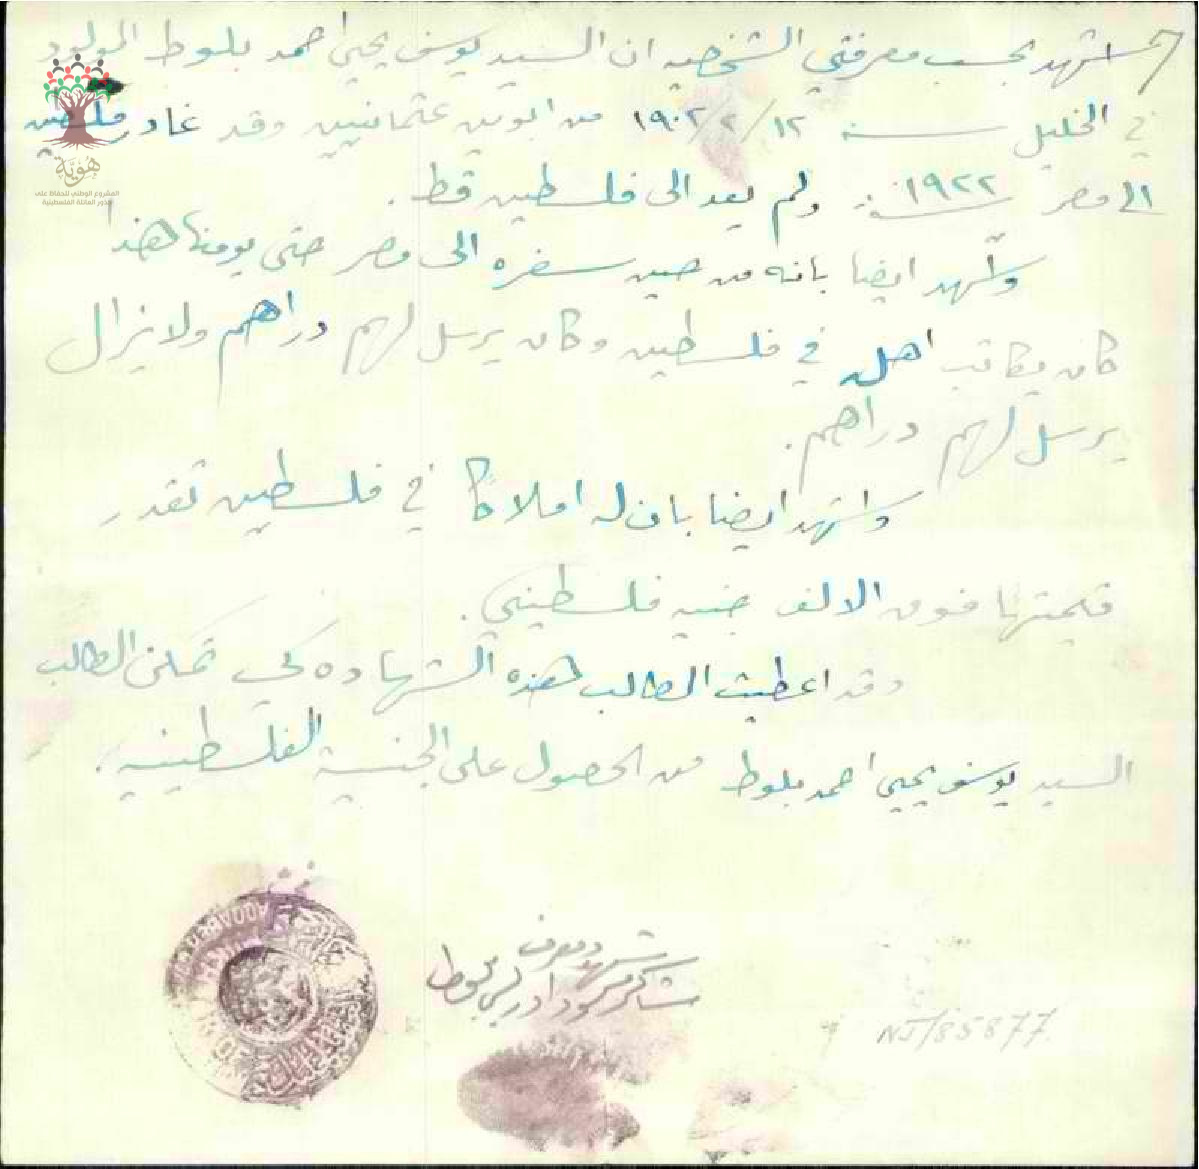 اشهد بحسب معرفتي الشخصيه ان السيد يوسف يحيى احمد بلوط المولود
في الخليل سنة ١٢/٢/١٩٠٢ من ابوين عثمانيين وقد غادر فلسطين
الى مصر سنة ١٩٢٢ ولم يعد الى فلسطين قط.
واشهد ايضا بانه من حين سفره الى مصر حتى يومنا هذا
كان يكاتب اهله في فلسطين وكان يرسل لهم دراهم ولا يزال
يرسل لهم دراهم.
واشهد ايضا بان له املاكا في فلسطين تقدر
قيمتها فوق الالف جنيه فلسطيني.
وقد اعطيت الطالب هذه الشهاده كي تمكن الطالب
السيد يوسف يحيى احمد بلوط من الحصول على الجنسية الفلسطينيه.
شاكر محمود
NJ/85877.
هُوِيَّة
المشروع الوطني للحفاظ على
جذور العائلة الفلسطينية